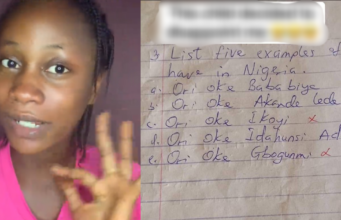 3 List five examples of
have in Nigeria.
a. Ori Oke Baba biye
b. Ori Oke Akande
c. Ori Oke Ikoyi x
d. Ori Oke Idahunsi Ad
e. Ori Oke Gbogunmi x